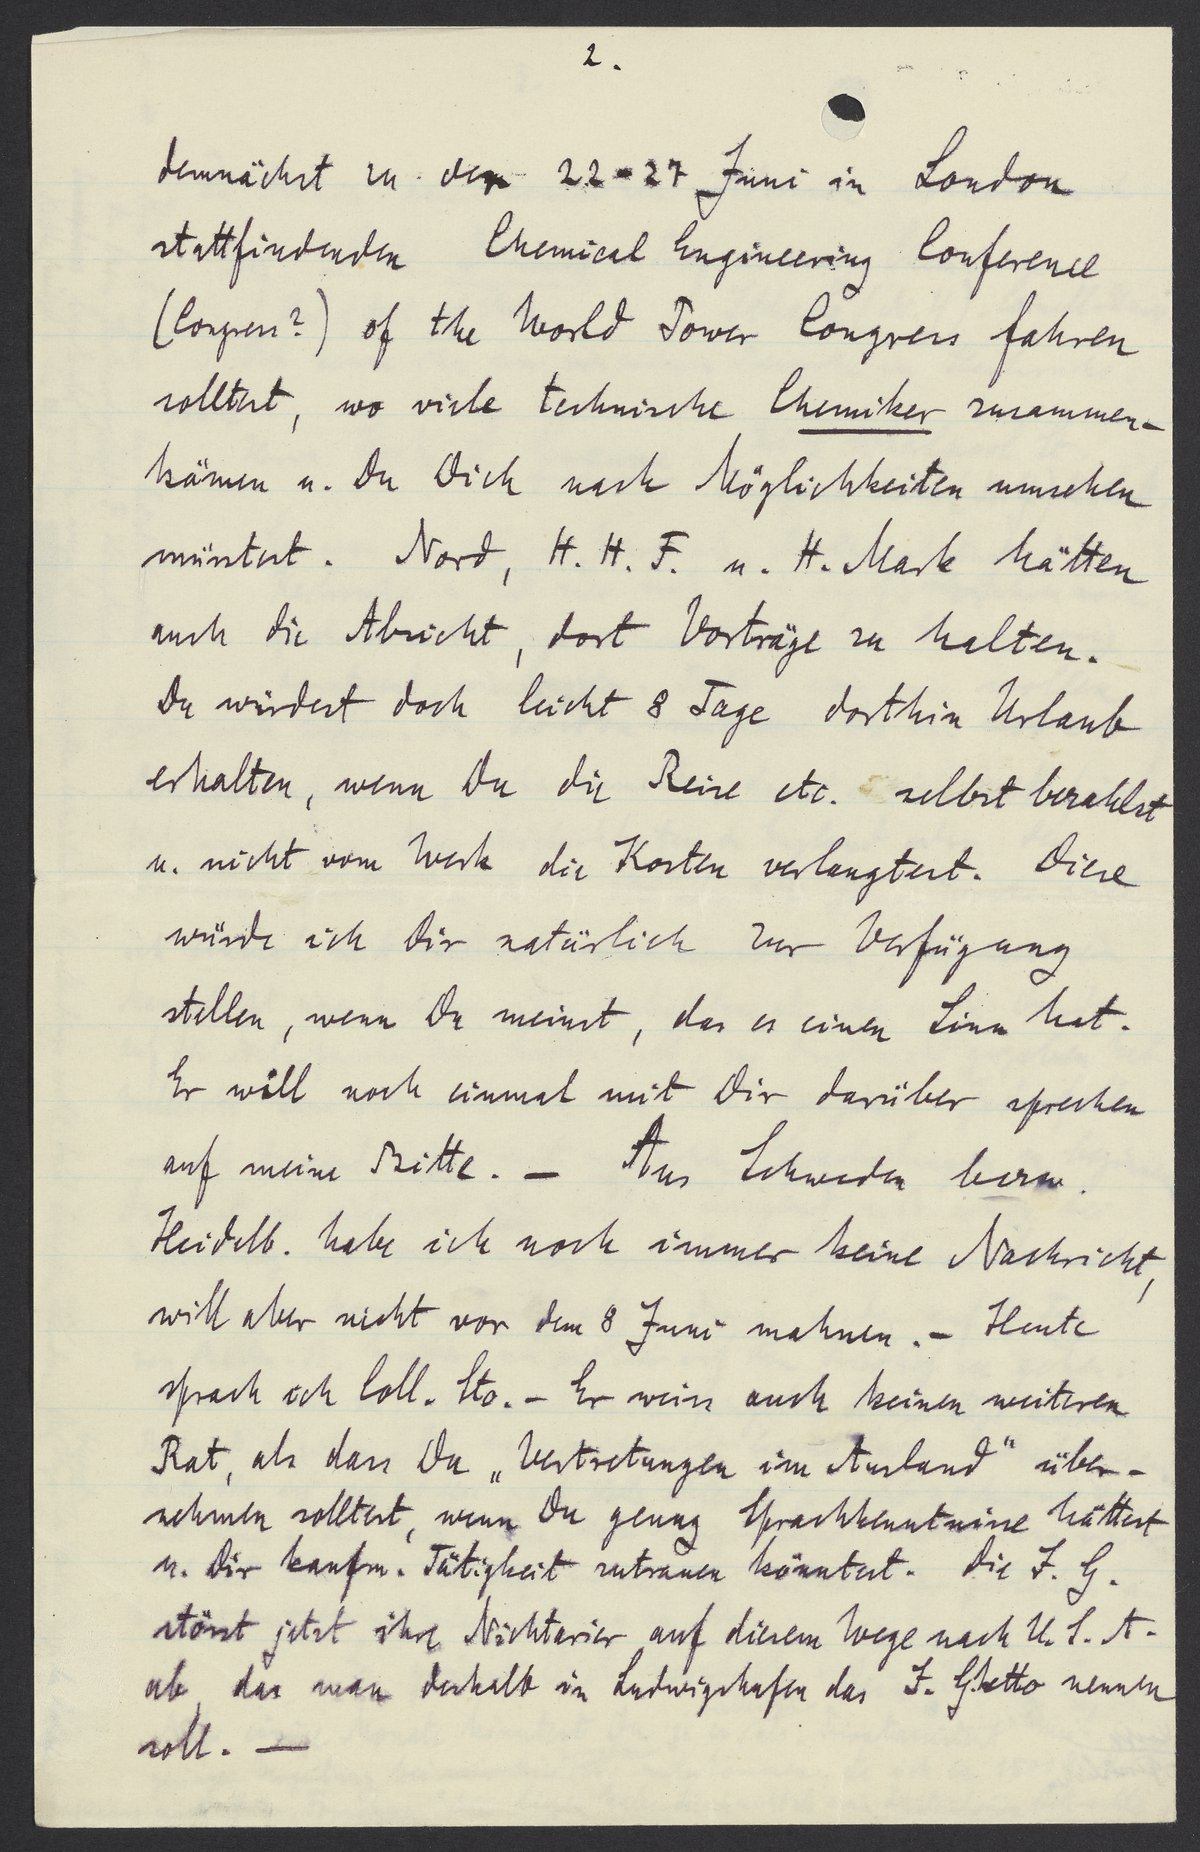 2.
demnächst zu der 22-27 Juni in London
stattfindenden Chemical Engineering Conference
(Congress?) of the World Power Congress fahren
solltest, wo viele technische Chemiker zusammen-
kämen u. Du Dich nach Möglichkeiten umsehen
müsstest. Nord, H. H. F. u. H. Mark hätten
auch die Absicht, dort Vorträge zu halten.
Du würdest doch leicht 8 Tage dorthin Urlaub
erhalten, wenn Du die Reise etc. selbst bezahlst
u. nicht vom Werk die Kosten verlangtest. Diese
würde ich Dir natürlich zur Verfügung
stellen, wenn Du meinst, das es einen Sinn hat.
Er will noch einmal mit Dir darüber sprechen
auf meine Bitte. — Aus Schweden bezw.
Heidelb. habe ich noch immer keine Nachricht,
will aber nicht vor dem 8 Juni mahnen. — Heute
sprach ich Coll. Sto. — Er weiss auch keinen weiteren
Rat, als dass Du „Vertretungen im Ausland" über-
nehmen solltest, wenn Du genug Sprachkenntnisse hättest
u. Dir kaufm. Tätigkeit zutrauen könntest. Die I. G.
stösst jetzt ihre Nichtarier auf diesem Wege nach U. S. A.
ab, das man deshalb in Ludwigshafen das I. Ghetto nennen
soll. —